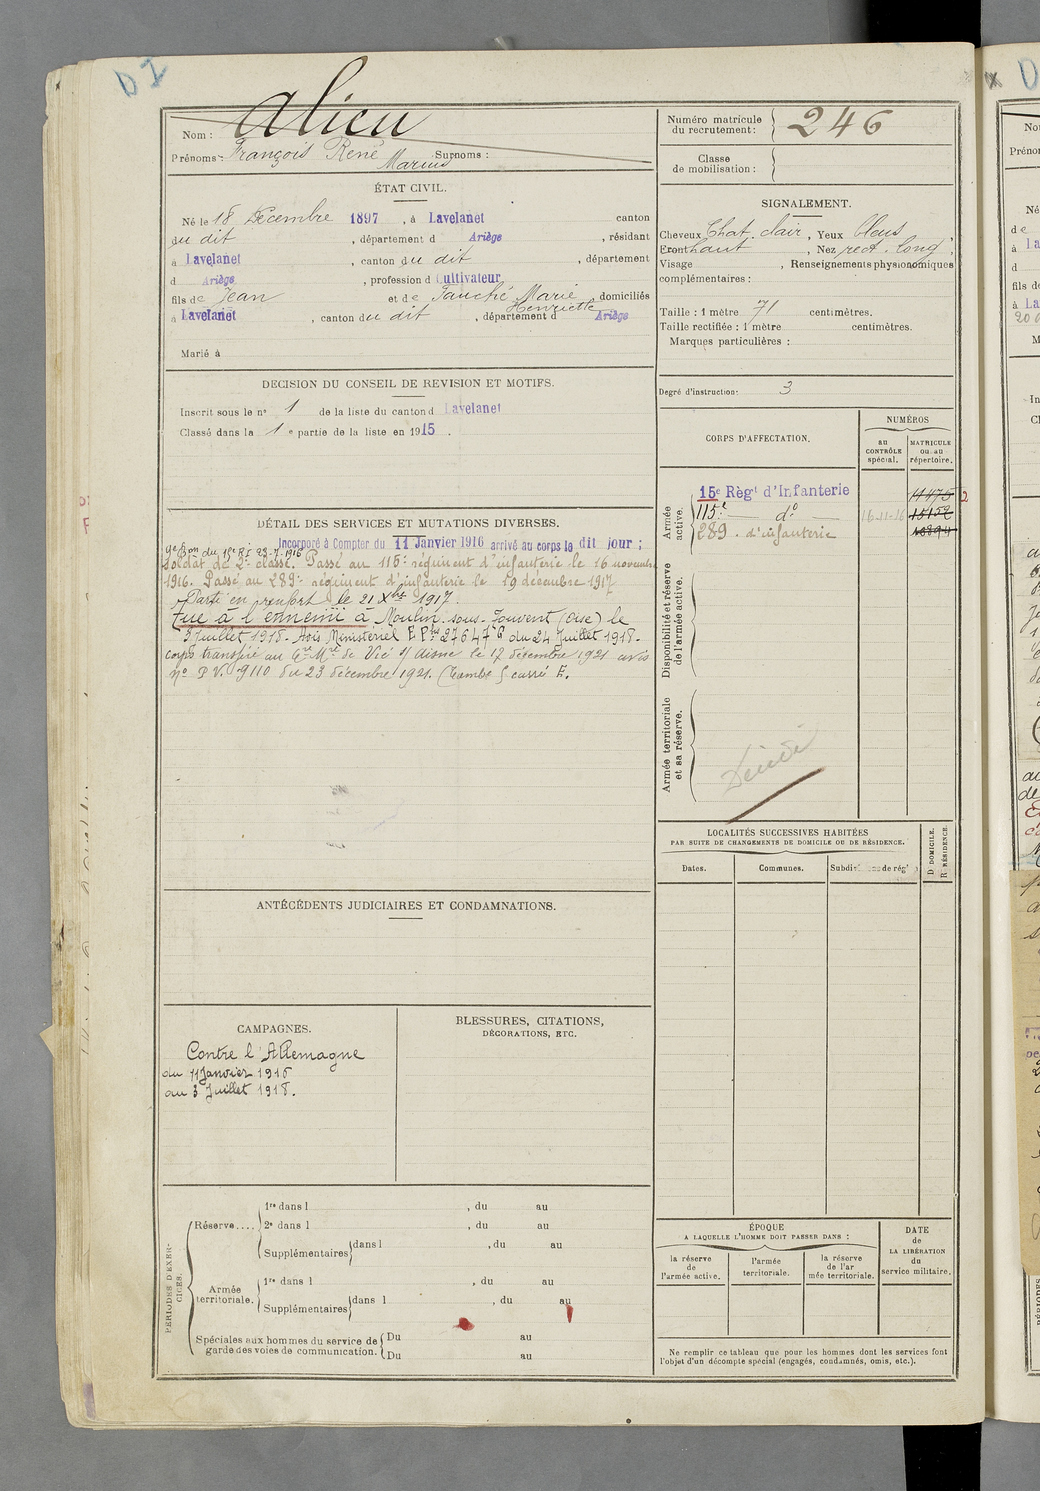 D I
Nom : Alieu
Prénoms : François René Marius Surnoms :
Numéro matricule du recrutement : 246
Classe de mobilisation :
ÉTAT CIVIL.
Né le 18 Décembre 1897, à Lavelanet canton
du dit, département d Ariège, résidant
à Lavelanet, canton du dit, département
d Ariège, profession d Cultivateur
fils de Jean et de Fauché Marie Henriette domiciliés
à Lavelanet, canton du dit, département d Ariège
Marié à
SIGNALEMENT.
Cheveux Chat. clair, Yeux bleus ;
Front haut, Nez rect. long ;
Visage , Renseignements physionomiques
complémentaires :
Taille : 1 mètre 71 centimètres.
Taille rectifiée : 1 mètre centimètres.
Marques particulières :
Degré d'instruction : 3
DECISION DU CONSEIL DE REVISION ET MOTIFS.
Inscrit sous le n° 1 de la liste du canton d Lavelanet
Classé dans la 1e partie de la liste en 1915.
CORPS D'AFFECTATION.
NUMÉROS
au CONTRÔLE spécial.
MATRICULE ou au répertoire.
Armée active.
15e Régt d'Infanterie 11475 2
115e — d° 16-11-16 15152
289 . d'infanterie
Disponibilité et réserve de l'armée active.
Armée territoriale et sa réserve.
Décédé
DÉTAIL DES SERVICES ET MUTATIONS DIVERSES.
Incorporé à Compter du 11 Janvier 1916 arrivé au corps le dit jour ;
Soldat de 2e classe. Passé au 115e régiment d'infanterie le 16 novembre
1916. Passé au 289e régiment d'infanterie le 19 décembre 1917
Parti en renfort le 21 Xbre 1917.
Tué à l'ennemi à Moulin-sous-Touvent (Oise) le
3 Juillet 1918. Avis Ministériel du 24 Juillet 1918.
corps transféré au de Vic s/ Aisne le 17 décembre 1921 avis
n° P.V. 9110 du 23 décembre 1921. Tombe 5 carré E.
LOCALITÉS SUCCESSIVES HABITÉES
PAR SUITE DE CHANGEMENTS DE DOMICILE OU DE RÉSIDENCE.
Dates.
Communes.
D DOMICILE.
R RÉSIDENCE.
ANTÉCÉDENTS JUDICIAIRES ET CONDAMNATIONS.
CAMPAGNES.
Contre l'Allemagne
du 11 Janvier 1916
au 3 Juillet 1918.
BLESSURES, CITATIONS,
DÉCORATIONS, ETC.
PÉRIODES D'EXERCICES.
Réserve....
1re dans l , du au
2e dans l , du au
Supplémentaires dans l , du au
Armée territoriale.
1re dans l , du au
Supplémentaires dans l , du au
Spéciales aux hommes du service de garde des voies de communication.
Du au
Du au
ÉPOQUE
A LAQUELLE L'HOMME DOIT PASSER DANS :
la réserve de l'armée active.
l'armée territoriale.
la réserve de l'armée territoriale.
DATE de LA LIBÉRATION du service militaire.
Ne remplir ce tableau que pour les hommes dont les services font
l'objet d'un décompte spécial (engagés, condamnés, omis, etc.).